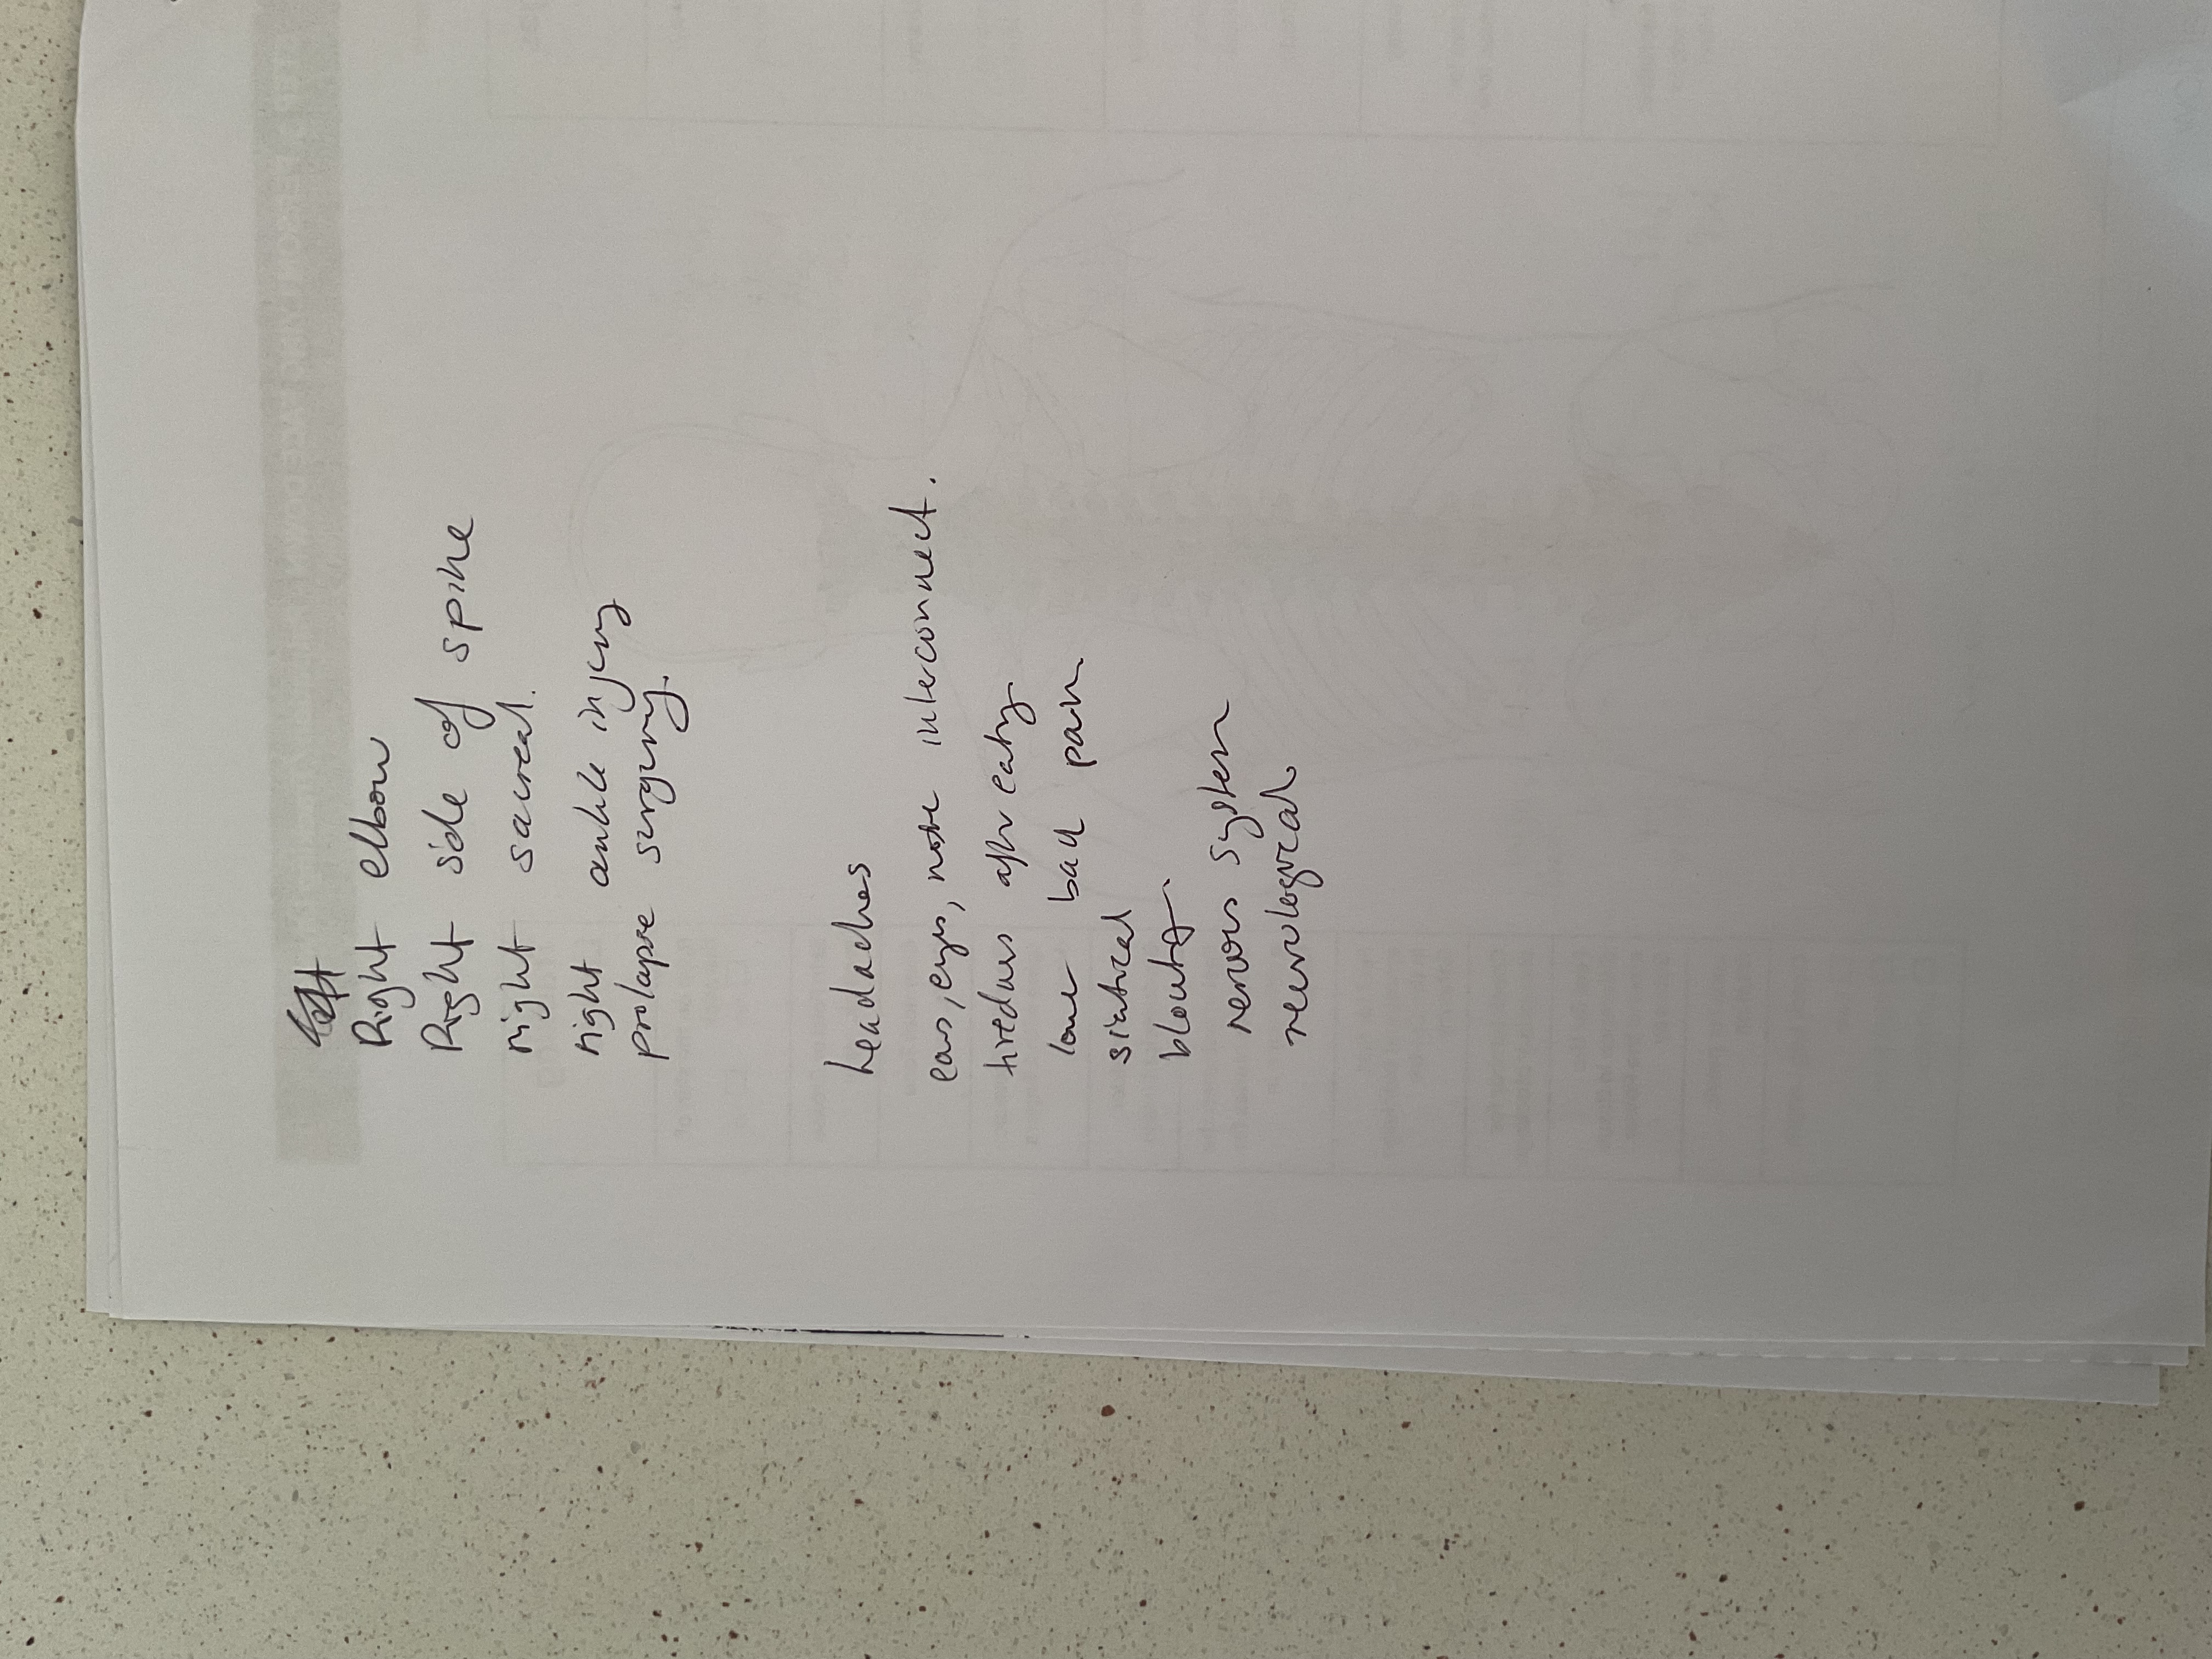 Right elbow
Right side of spine
right sacral.
right ankle injury
prolapse surgery.
headaches
ears, eyes, nose interconnect.
tiredness after eating
low back pain
bloating.
nervous system
neurological.